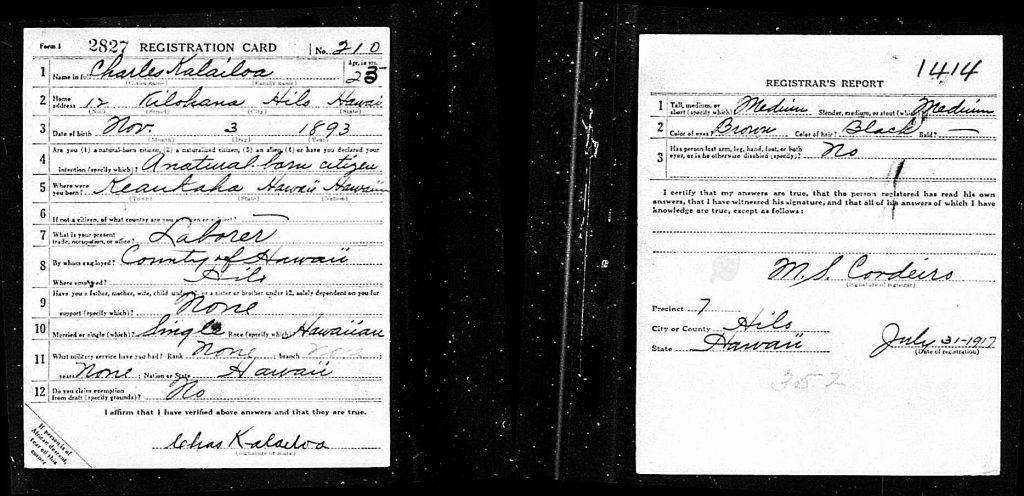 Form 1 2827 REGISTRATION CARD No. 210
1 Name in full Charles Kalailoa Age, in yrs. 23
(Given name) (Family name)
2 Home address 12 Kilohana Hilo Hawaii
(No.) (Street) (City) (State)
3 Date of birth Nov. 3 1893
(Month) (Day) (Year)
4 Are you (1) a natural-born citizen, (2) a naturalized citizen, (3) an alien, (4) or have you declared your
intention (specify which)? A natural born citizen
5 Where were you born? Keaukaha Hawaii Hawaii
(Town) (State) (Nation)
6 If not a citizen, of what country are you a citizen or subject? —
7 What is your present trade, occupation, or office? Laborer
8 By whom employed? County of Hawaii
Where employed? Hilo
9 Have you a father, mother, wife, child under 12, or a sister or brother under 12, solely dependent on you for
support (specify which)? None
10 Married or single (which)? Single Race (specify which)? Hawaiian
11 What military service have you had? Rank None ; branch None ;
years None ; Nation or State Hawaii
12 Do you claim exemption from draft (specify grounds)? No
I affirm that I have verified above answers and that they are true.
Chas Kalailoa
(Signature or mark)
If person is of African descent, tear off this corner
1414
REGISTRAR'S REPORT
1 Tall, medium, or short (specify which)? Medium Slender, medium, or stout (which)? Medium
2 Color of eyes? Brown Color of hair? Black Bald? —
3 Has person lost arm, leg, hand, foot, or both eyes, or is he otherwise disabled (specify)? No
I certify that my answers are true, that the person registered has read his own
answers, that I have witnessed his signature, and that all of his answers of which I have
knowledge are true, except as follows:
M. S. Cordeiro
(Signature of registrar)
Precinct 7
City or County Hilo
State Hawaii July 31-1917
(Date of registration)
352